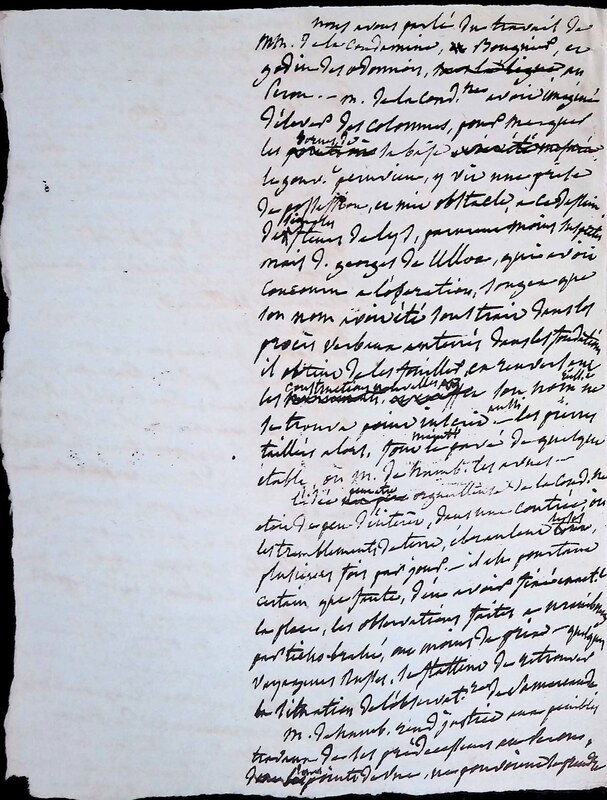 nous avons parlé du travail de
MM. de la Condamine, Bouguer, et
godin des odonais, au
Perou. — M. de la Cond.ne avoit imaginé
d'élever des colonnes, pour marquer
les bornes de sa base
le gouv.t péruvien, y vit une prise
de possession, et mit obstacle, a ce dessein
fleurs de lys, parurent moins suspectes
mais D. georges de Ulloa, qui avoit
concouru a l'opération, songea que
son nom avoit été soustrait dans les
procès verbaux enterrés dans les fondations
il obtint de les fouiller, en renversant
les constructions nouvelles son nom ne
se trouva point inséré — les pierres
taillées alors, font le pavé de quelque
étable, où M. de humb. les a vues —
l'idée peut etre orgueilleuse de la Cond.ne
etoit de peu d'interet, dans une contrée, où
les tremblements de terre, ébranlent
plusieurs fois par jour. — il est pourtant
certain, que faute, d'en avoir
la place, les observations faites a
par ticho-brahé, ont moins de prix — quelques
voyageurs se flattent de retrouver
la situation de l'observat.re
M. de humb. rend justice aux pénibles
travaux de ses prédécesseurs au Perou,
de vue, ne pouvoient